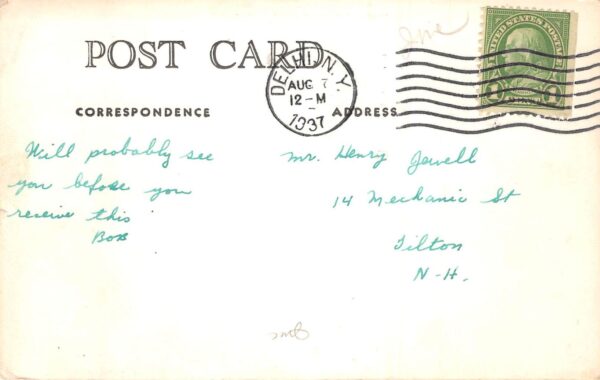 POST CARD
DELHI, N.Y.
AUG 7
12-M
1937
UNITED STATES POSTAGE
1 1
CORRESPONDENCE
ADDRESS
Will probably see
you before you
receive this
Bob
Mr. Henry Jewell
14 Mechanic St
Tilton
N-H.